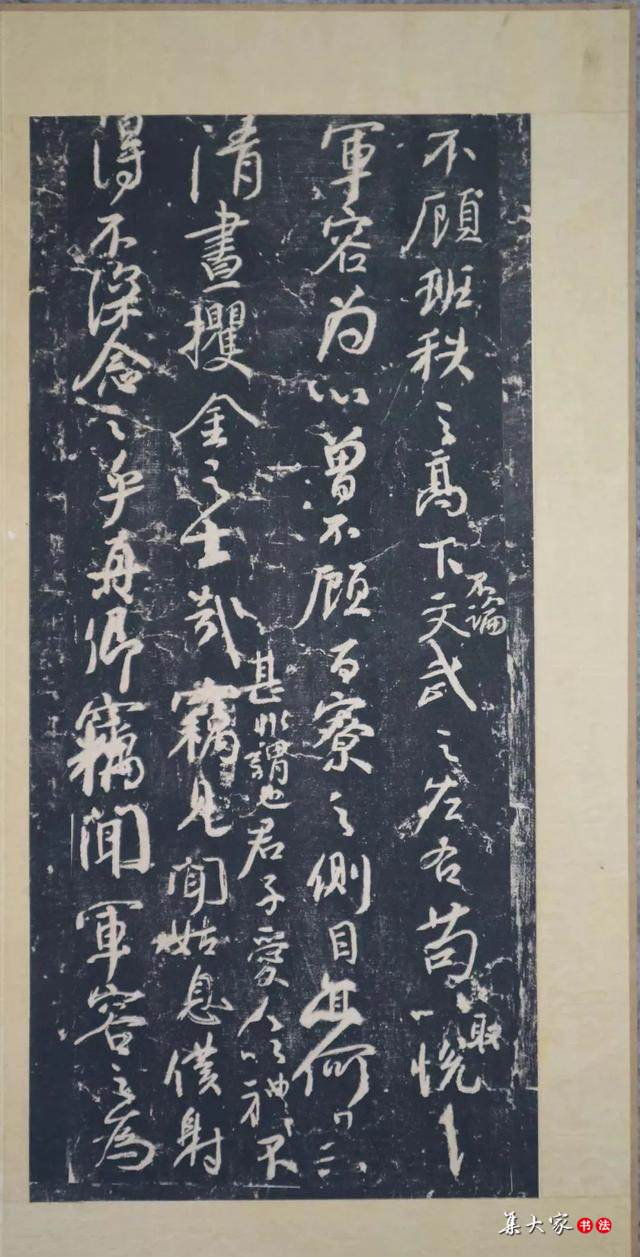 不顧班秩之高下文武之左右苟以悅
不論
取
軍容為心曾不顧百寮之側目亦何
清晝攫金之士哉竊見聞姑息僕射
甚非謂也君子愛人以禮不
得不深念之乎真卿竊聞軍容之為
集大家 书法